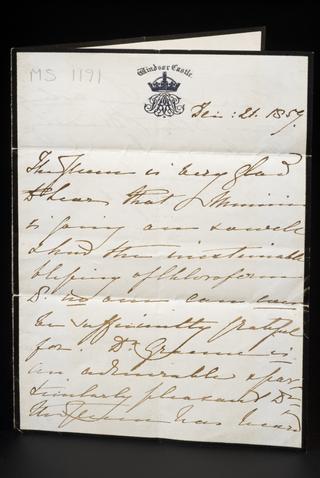 MS 1191
Windsor Castle
Dec: 21. 1857.
The Queen is very glad
to hear that Minnie
is going on so well
& had the inestimable
blessing of chloroform
no one can ever
be sufficiently grateful
for. Dr Greame is
an admirable &
pleasant Dr
The Queen has heard